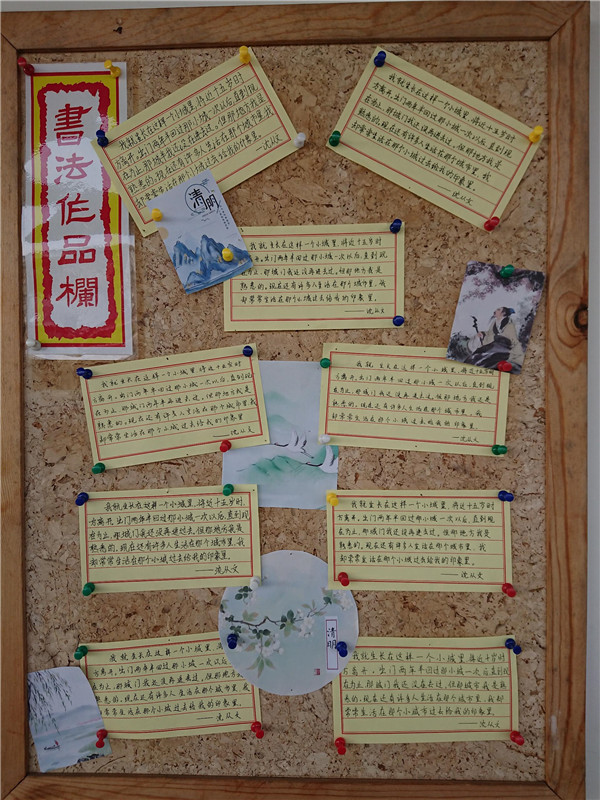 書法作品欄
我就生长在这样一个小城里,将近十五岁时
方离开。出门两年半回过那小城一次以后,直到现
在为止,那城门我还没再进去过。但那地方我是
熟悉的。现在还有许多人生活在那个城市里,我
却常常生活在那个小城过去给我的印象里。
——沈从文
我就生长在这样一个小城里,将近十五岁时
方离开。出门两年半回过那小城一次以后,直到现
在为止,那城门我还没再进去过。但那地方我是
熟悉的。现在还有许多人生活在那个城市里,我
却常常生活在那个小城过去给我的印象里。
——沈从文
清明
我就生长在这样一个小城里,将近十五岁时
方离开。出门两年半回过那小城一次以后,直到现
在为止,那城门我还没再进去过。但那地方我是
熟悉的。现在还有许多人生活在那个城市里,我
却常常生活在那个小城过去给我的印象里。
——沈从文
我就生长在这样一个小城里,将近十五岁时
方离开。出门两年半回过那小城一次以后,直到现
在为止,那城门我还没再进去过。但那地方我是
熟悉的。现在还有许多人生活在那个城市里,我
却常常生活在那个小城过去给我的印象里
——沈从文
我就生长在这样一个小城里,将近十五岁时
方离开。出门两年半回过那小城一次以后,直到现
在为止,那城门我还没再进去过。但那地方我是
熟悉的。现在还有许多人生活在那个城市里,我
却常常生活在那个小城过去给我的印象里。
——沈从文
我就生长在这样一个小城里,将近十五岁时
方离开。出门两年半回过那小城一次以后,直到现
在为止,那城门我还没再进去过。但那地方我是
熟悉的。现在还有许多人生活在那个城市里,我
却常常生活在那个小城过去给我的印象里。
——沈从文
我就生长在这样一个小城里,将近十五岁时
方离开。出门两年半回过那小城一次以后,直到现
在为止,那城门我还没再进去过,但那地方我是
熟悉的。现在还有许多人生活在那个城市里。我
却常常生活在那个小城过去给我的印象里。
——沈从文
清明
我就生长在这样一个小城里,
方离开。出门两年半回过那小城一次以后
在为止,那城门我还没再进去过。但那地方
熟悉的。现在还有许多人生活在那个城市里,我
却常常生活在那个小城过去给我的印象里。
——沈从文
我就生长在这样一个小城里,将近十岁时
方离开。出门两年半回过那小城一次以后直到现
在为止,那城门我还没再去过。但那城市我是熟
悉的。现在还有许多人生活在那个城市里,我却
常常生活在那个小城市过去给我的印象里。
——沈从文